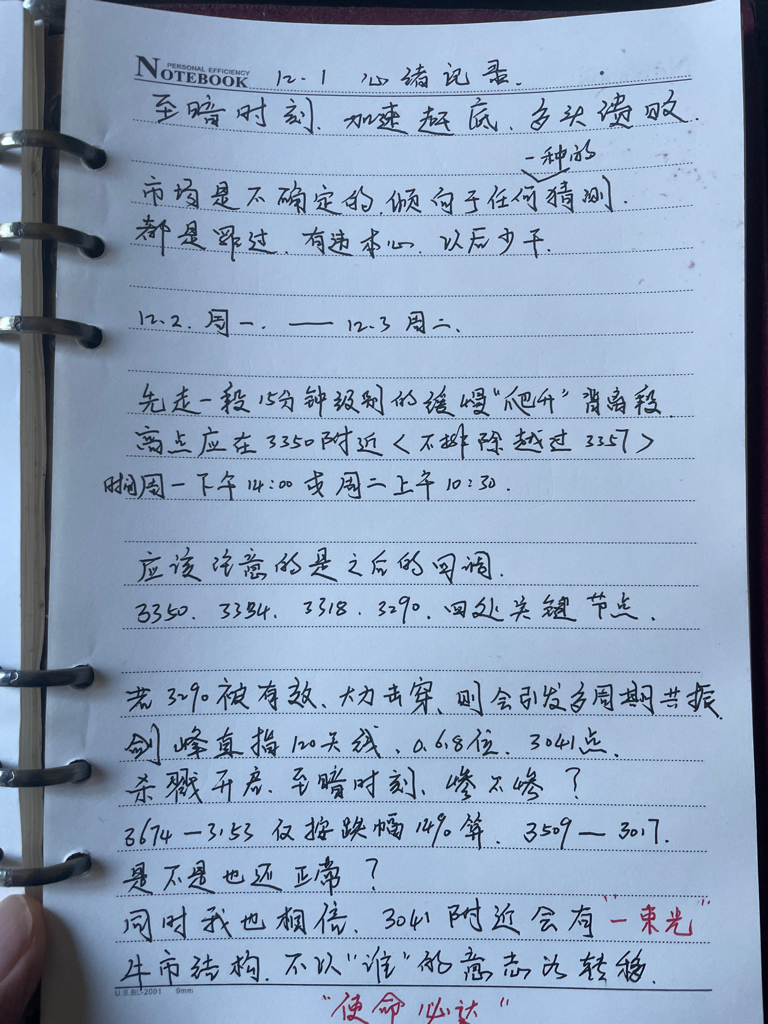 PERSONAL EFFICIENCY
NOTEBOOK 12.1 心绪记录.
至暗时刻. 加速赶底. 多头溃败.
一种的
市场是不确定的. 倾向于任何猜测.
都是罪过. 有违本心. 以后少干.
12.2. 周一. —— 12.3 周二.
先走一段15分钟级别的缓慢“爬升”背离段.
高点应在3350附近<不排除越过3357>
时间周一下午14:00或周二上午10:30.
应该注意的是之后的回调.
3350. 3334. 3318. 3290. 四处关键节点.
若3290被有效、大力击穿. 则会引发多周期共振.
剑峰直指120天线、0.618位. 3041点.
杀戮开启. 至暗时刻. 惨不惨?
3674—3153 仅按跌幅14%算. 3509—3017.
是不是也还正常?
同时我也相信. 3041附近会有“一束光”
牛市结构. 不以“谁”的意志为转移.
U.S.BL-2001 9mm
“使命必达”